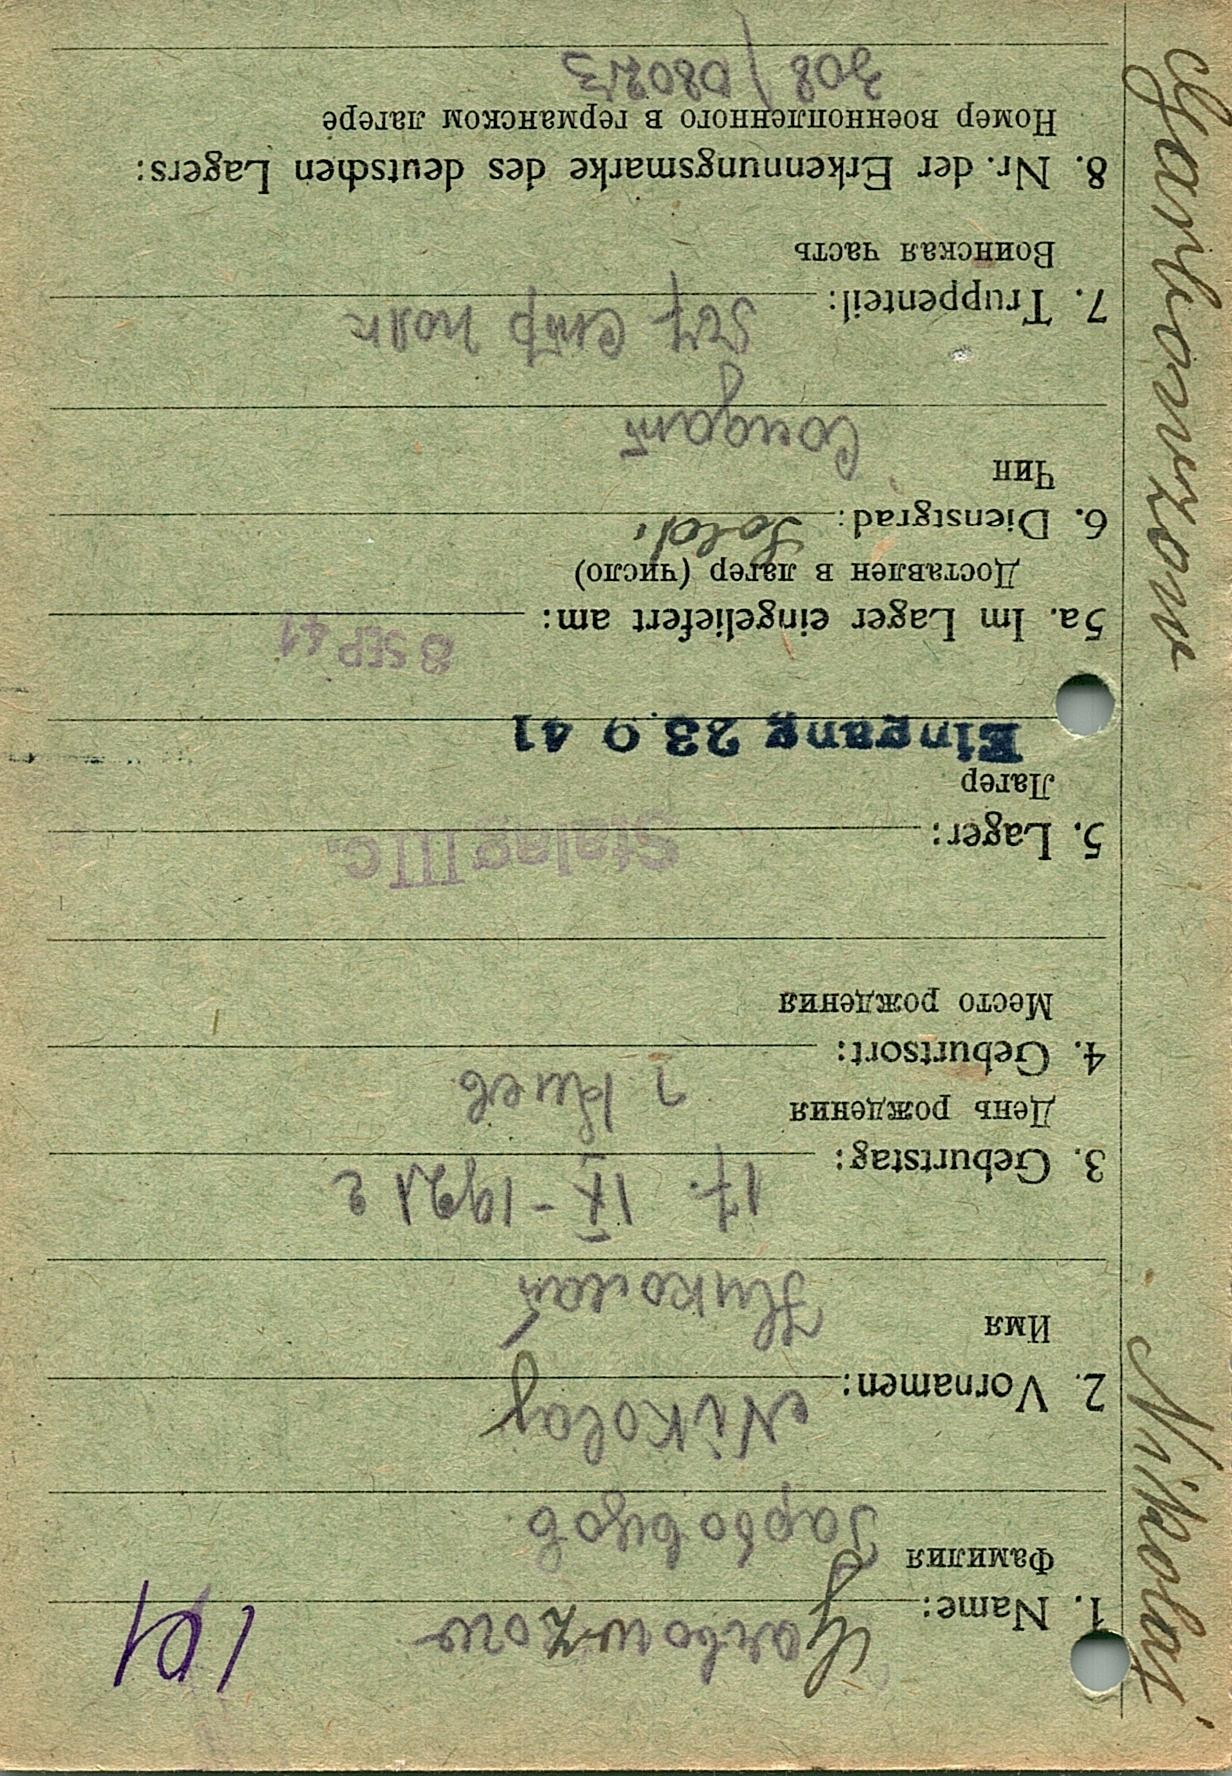 Garbowzow
Nikolai
191
1. Name: Garbowzow
Фамилия Гарбовцов
2. Vornamen: Nikolay
Имя Николай
3. Geburtstag: 17. IX - 1921 г
День рождения
4. Geburtsort: г Киев
Место рождения
5. Lager: Stalag III c.
Лагер
Eingang 23. 9 41
5a. Im Lager eingeliefert am: 8 SEP 41
Доставлен в лагер (число)
6. Dienstgrad: Sold.
Чин Солдат
7. Truppenteil: стр полк
Воинская часть
8. Nr. der Erkennungsmarke des deutschen Lagers:
Номер военнопленного в германском лагере
308/08023